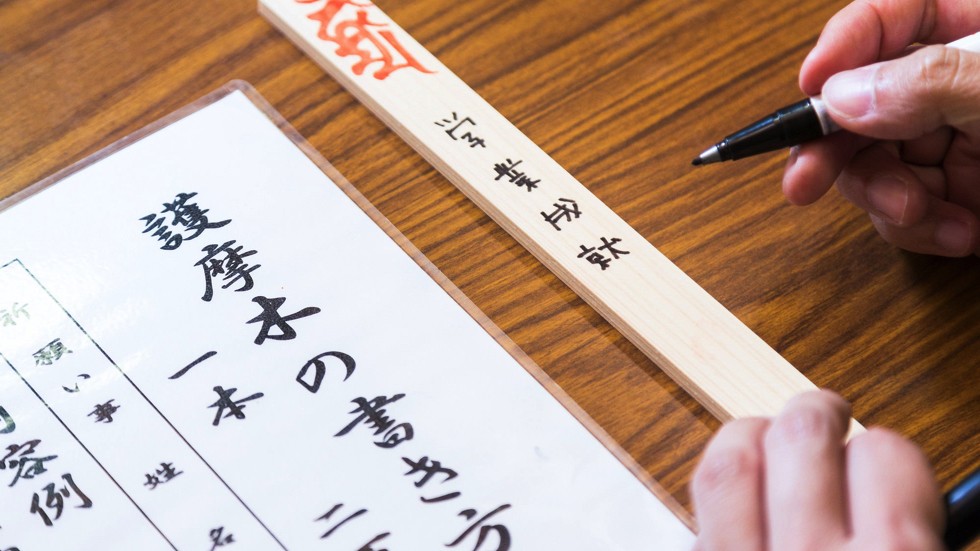 学業成就
護摩木の書き方
一本
二
願い事
姓名
容例